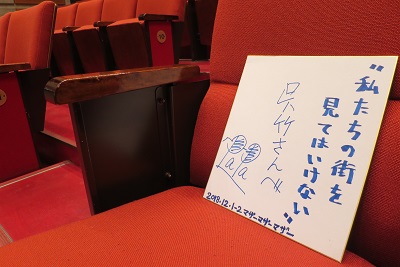 “私たちの街を
見てはいけない”
呉竹さんへ
LaLa
2018.12.1-2 マザーマザーマザー